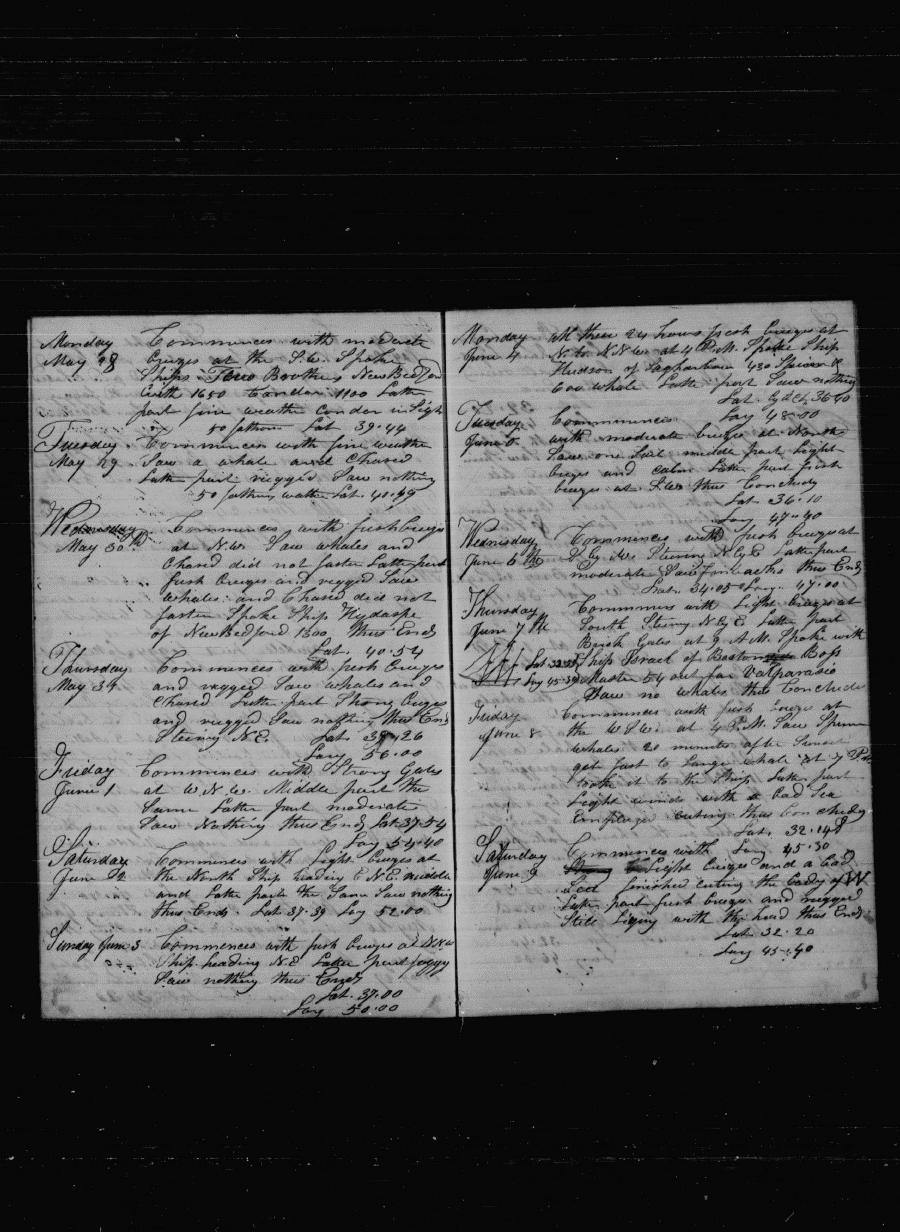 Monday Commences with moderate
May 28 Breezes at the S.W. Spoke
Ships Two Brothers New Bedford
with 1650 Condor 1100 Latter
part fine weather Condor in Sight
50 fathom Lat 39.44
Tuesday Commences with fine weather
May 29 Saw a whale and Chased
Latter part rugged Saw nothing
50 fathms watter Lat. 40.49
Wednesday Commences with fresh breezes
May 30th at N.W. Saw whales and
Chased did not fasten Latter part
fresh Breezes and rugged Saw
whales and Chased did not
fasten Spoke Ship Hydaspe
of New Bedford 1300 thus Ends
Lat. 40.54
Thursday Commences with fresh breezes
May 31 and rugged Saw whales and
Chased Latter part Strong Breezes
and rugged Saw nothing thus Ends
Steering N.E. Lat. 39.26
Long 56.00
Friday Commences with Strong Gales
June 1 at W.N.W. Middle part the
Same Latter part moderate
Saw Nothing thus Ends Lat 37.54
Long 54.40
Saturday Commences with Light breezes at
June 2 the North Ship heading E.N.E. middle
and Latter parts the Same Saw nothing
thus Ends Lat 37.39 Long 52.00
Sunday June 3 Commences with fresh Breezes at
Ship heading N.E. Latter part foggy
Saw nothing thus Ends
Lat. 37.00
Long 50.00
Monday All these 24 hours fresh breezes at
June 4 N. to N.N.W. at 4 P.M. Spoke Ship
Hudson of Sagharbour 430 Sperm &
600 whale Latter part Saw nothing
Lat. 36.40
Long 48.00
Tuesday Commences
June 5 with moderate breezes at North
Saw one Sail middle part Light
breezes and calm Latter part fresh
breezes at S.W. thus Concludes
Lat 36.10
Long 47.40
Wednesday Commences with fresh breezes at
June 6th Steering N.E. Latter part
moderate Saw thus Ends
Lat. 34.05 Long. 47.00
Thursday Commences with Light breezes at
June 7th South Steering N.E. Latter part
Brisk Gales at 9 A.M. Spoke with
Ship Israel of Boston Ross
Long 45.39 Master 54 out for Valparasie
Saw no whales thus Concludes
Friday Commences with fresh breezes at
June 8 the W.S.W. at 4 P.M. Saw Sperm
whales 20 minutes after Sunset
got fast to Large whale at 7 P.M.
took it to the Ship Latter part
Light winds with a bad Sea
Employed cuting thus Concludes
Lat. 32.14
Saturday Commences with Long 45.30
June 9 Light breezes and a bad
Sea finished cuting the body of W
Latter part fresh breezes and rugged
Still Liging with the head thus Ends
Lat 32.20
Long 45.40